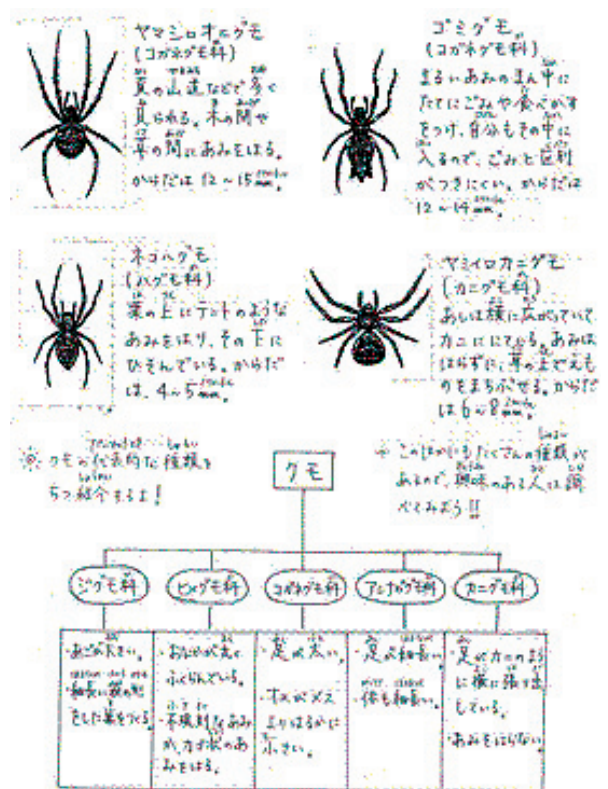 ヤマシロオニグモ
(コガネグモ科)
夏の山道などで多く
見られる。木の間や
草の間にあみをはる。
からだは12～15mm。
ゴミグモ
(コガネグモ科)
まるいあみのまん中に
たてにごみや食べかす
をつけ、自分もその中に
入るので、ごみと区別
がつきにくい。からだは
12～14mm。
ネコハグモ
(ハグモ科)
葉の上にテントのような
あみをはり、その下に
ひそんでいる。からだ
は、4～5mm。
ヤミイロカニグモ
(カニグモ科)
あしは横に広がっていて
カニににている。あみは
はらずに、草の上でえも
のをまちぶせる。からだ
は6～8mm。
クモの代表的な種類を
5つ紹介するよ!
このほかにもたくさんの種類が
あるので、興味のある人は調
べてみよう!!
クモ
ジグモ科
ヒメグモ科
コガネグモ科
アシナガグモ科
カニグモ科
・あごが大きい。
・細長い袋の形
をした巣をつくる。
・おなかが丸く
ふくらんでいる。
・不規則なあみ
や、カゴ状のあ
みをはる。
・足が太い。
・オスがメス
よりはるかに
小さい。
・足が細長い。
・体も細長い。
・足がカニのよう
に横に張り出
している。
・あみをはらない。